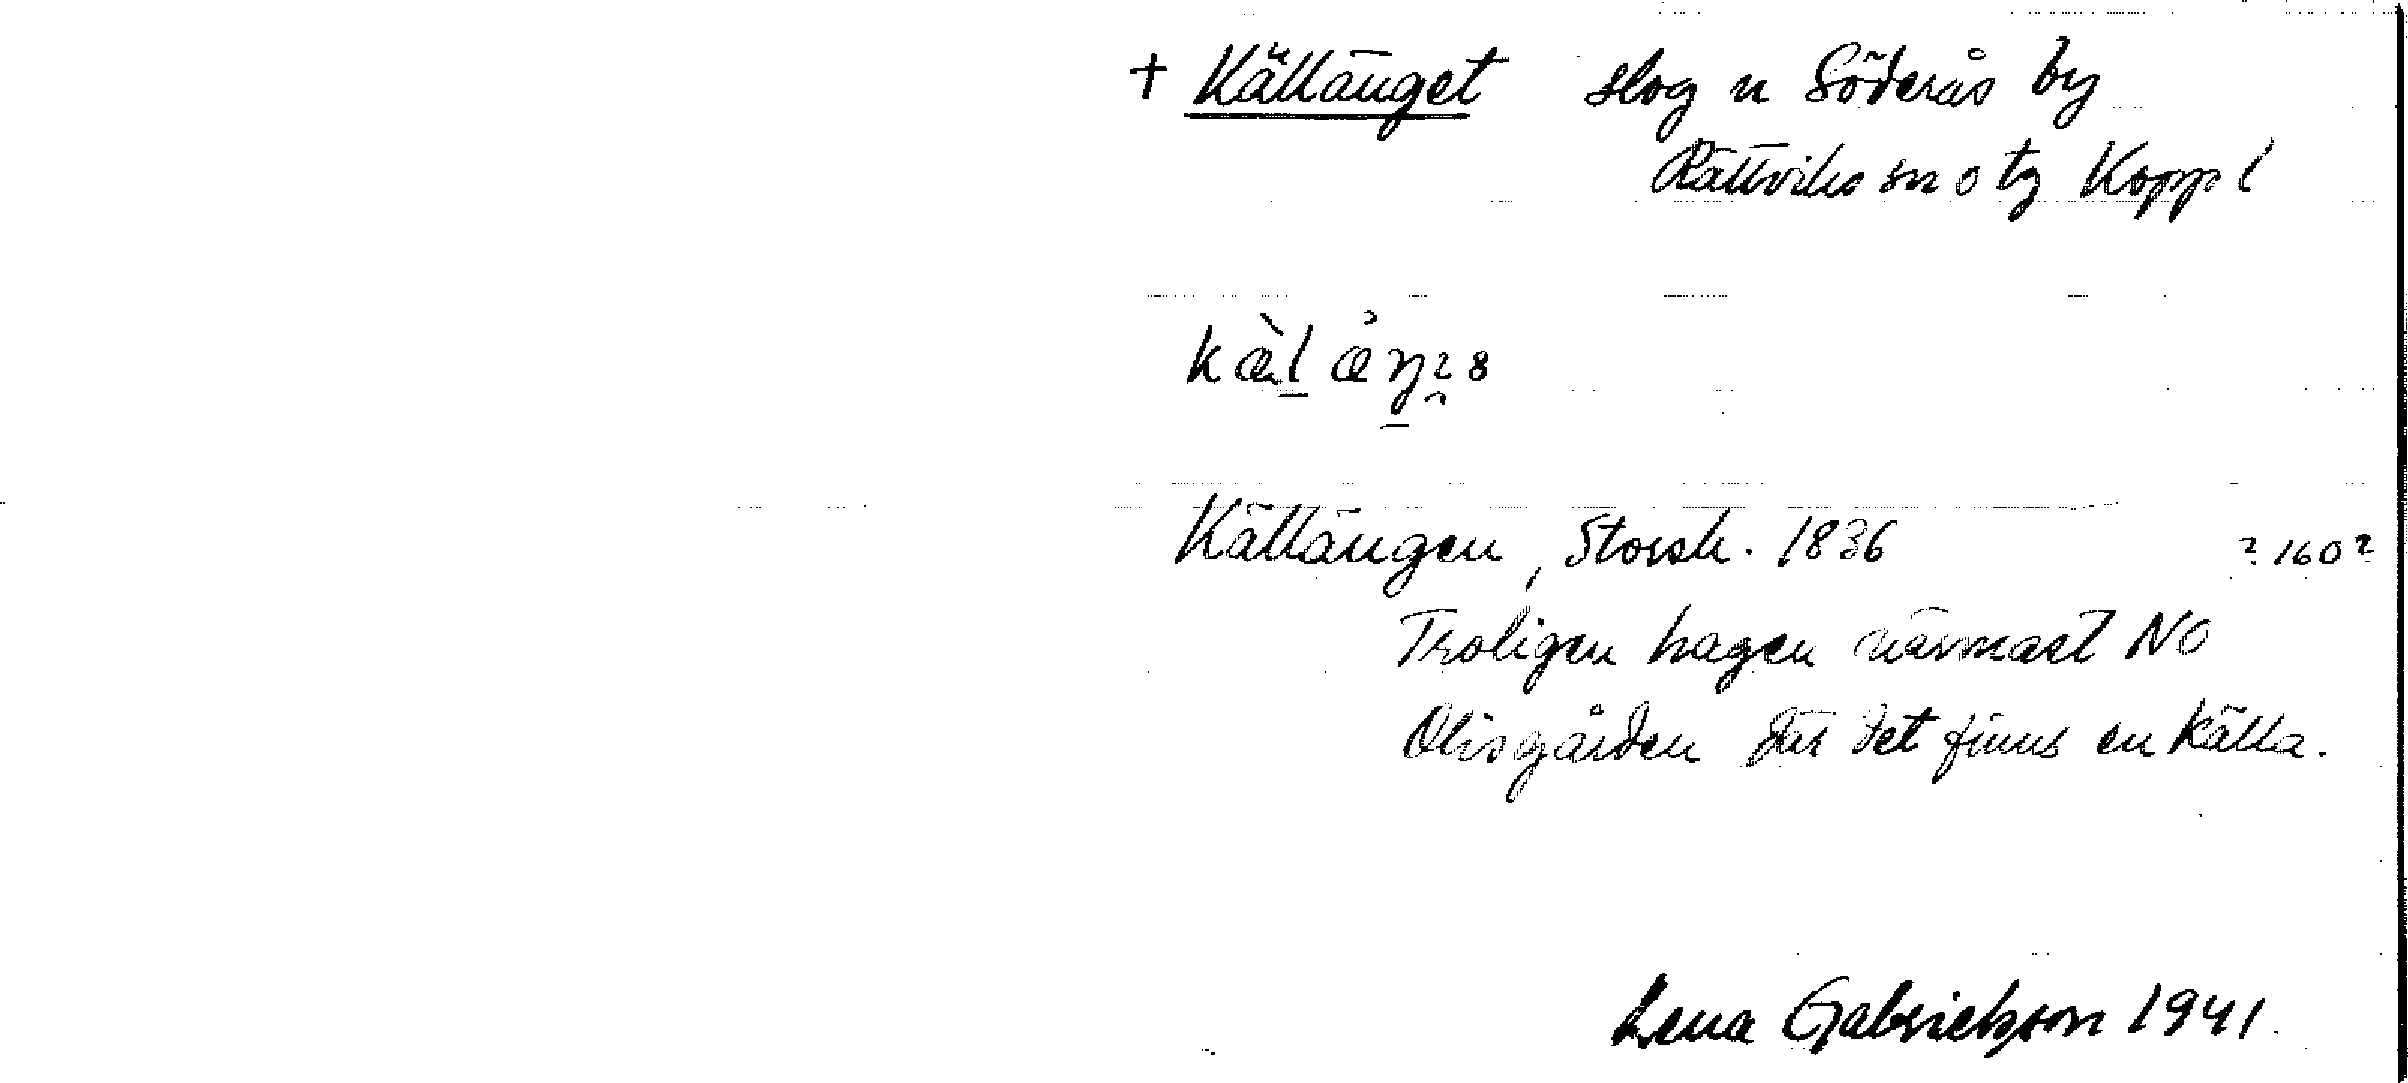 + Källänget slog n Söderås by
Rättviks sn o tg Kopp l
Källängen, Storsk. 1836 ? 160 ?
Troligen hagen närmast NO
Olisgården där det finns en källa.
Lena Gabrielsson 1941.